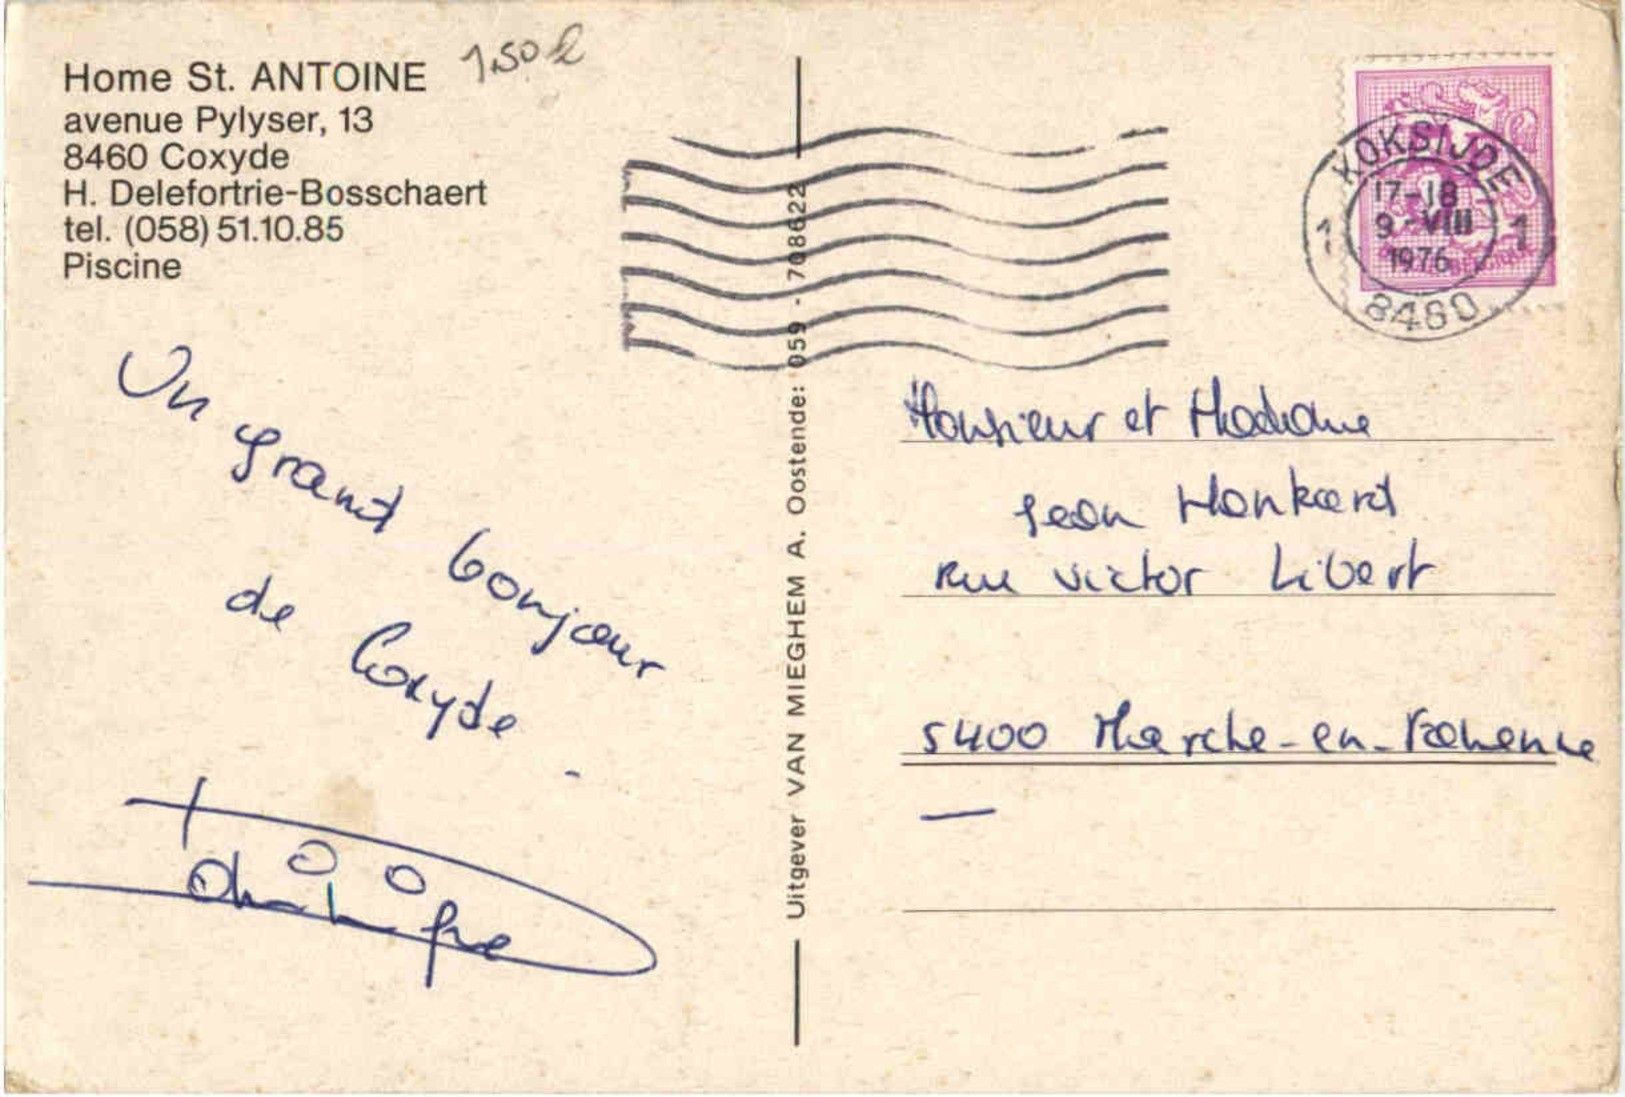 Home St. ANTOINE
avenue Pylyser, 13
8460 Coxyde
H. Delefortrie-Bosschaert
tel. (058) 51.10.85
Piscine
1.50
Un grand bonjour
de Coxyde
Uitgever VAN MIEGHEM A. Oostende: 059 - 708622
KOKSIJDE
17-18
9-VIII
1976
1 1
8460
Monsieur et Madame
Jean Honkard
Rue Victor Libert
5400 Marche-en-Famenne